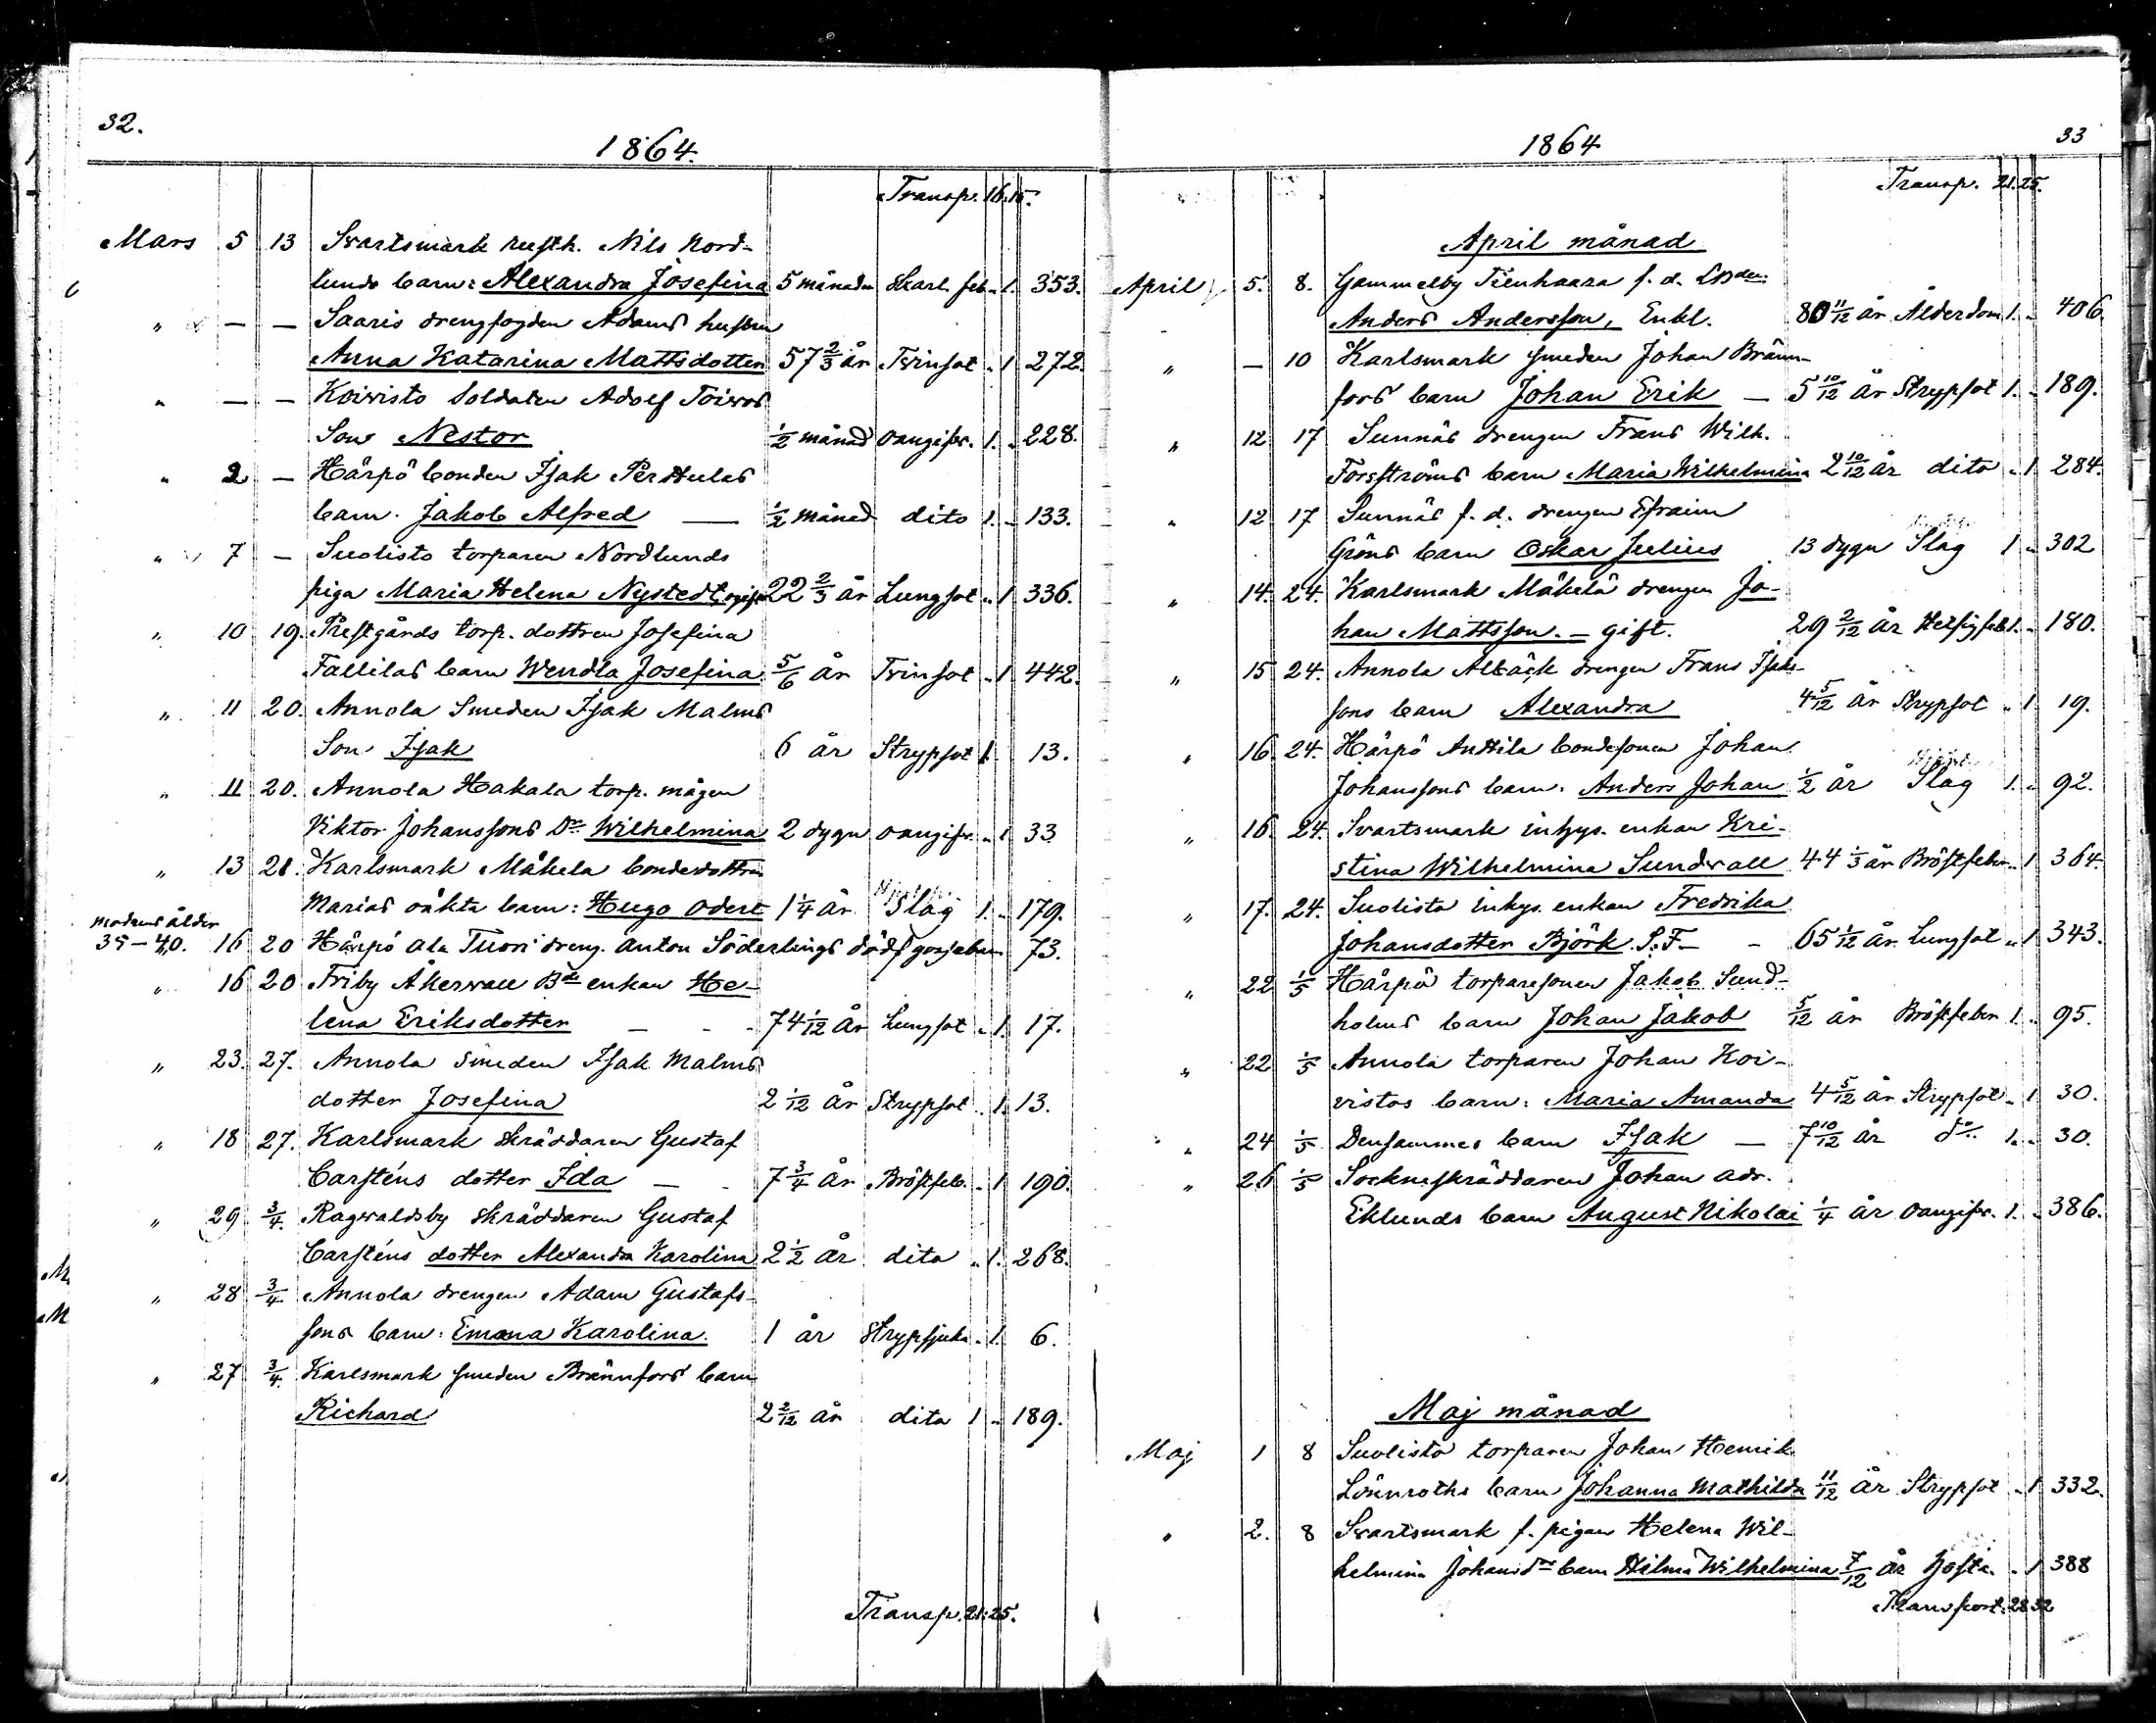 32.
1864.
Transp. 16. 15.
Mars 5 13 Svartsmark rusth. Nils Nord-
lunds barn: Alexandra Josefina 5 månader Skarl. feb. " 1. 353.
" — — Saaris drengfogden Adams hustru
Anna Katarina Mattsdotter 57 2/3 år Tvinsot " 1 272.
" — — Koivisto Soldaten Adolf Toivos
Son Nestor 1/2 månad oangifv. 1. " 228.
" 2 — Härpö bonden Isak Perttulas
barn. Jakob Alfred — 1/2 månad dito 1. " 133.
" 7 — Suolisto torparen Nordlunds
piga Maria Helena Nystedt, ogift 22 2/3 år Lungsot " 1 336.
" 10 19. Prestgårds torp. dottren Josefina
Fällilas barn Wendla Josefina 5/6 år Tvinsot " 1 442.
" 11 20. Annola Smeden Isak Malms
Son Isak 6 år Strypsot 1. 13.
" 11 20. Annola Hakala torp. mågen
Viktor Johanssons Dr Wilhelmina 2 dygn oangifv. " 1 33
" 13 21. Karlsmark Mäkelä bondedottren
Marias oäkta barn: Hugo Odert 1 1/4 år Slag 1. " 179.
Modrens ålder
35–40. 16 20 Härpö Ala Tuori dreng. Anton Söderlings dödf. gossebarn 73.
" 16 20 Friby Åkervall Bde enkan He-
lena Eriksdotter — - - 74 1/12 år Lungsot " 1. 17.
" 23. 27. Annola Smeden Isak Malms
dotter Josefina 2 1/12 år Strypsot " 1. 13.
" 18 27. Karlsmark Skräddaren Gustaf
Carsténs dotter Ida — - 7 3/4 år Bröstfeb. " 1 190.
" 29 3/4. Ragvaldsby skräddaren Gustaf
Carsténs dotter Alexandra Karolina 2 1/2 år dito " 1. 268.
" 28 3/4 Annola drengen Adam Gustafs-
sons barn: Emma Karolina. 1 år Strypsjuka " 1. 6.
" 27 3/4. Karlsmark smeden Brännfors barn
Richard 2 2/12 år dito 1 " 189.
Transp. 21. 25.
1864
33
Transp. 21. 25.
April månad
April 5. 8. Gammelby Tienhaara f. d.
Anders Andersson, Enkl. 80 11/12 år Ålderdom 1. " 406.
" — 10 Karlsmark smeden Johan Bränn-
fors barn Johan Erik — 5 10/12 år Strypsot 1. " 189.
" 12 17 Sunnäs drengen Frans Wilh.
Forsströms barn Maria Wilhelmina 2 10/12 år dito " 1 284.
" 12 17 Sunnäs f. d. drengen Efraim
Gröns barn Oskar Julius 13 dygn Slag 1 " 302
" 14. 24. Karlsmark Mäkelä drengen Jo-
han Mattsson. — gift. 29 2/12 år 1. " 180.
" 15 24. Annola Albäck drengen Frans Isaks-
sons barn Alexandra 4 5/12 år Strypsot " 1. 19.
" 16 24. Härpö Anttila bondesonen Johan
Johanssons barn: Anders Johan 1/2 år Slag 1. " 92.
" 16 24. Svartsmark inhys. enkan Kri-
stina Wilhelmina Sundvall 44 1/3 år Bröstfeber " 1 364.
" 17. 24. Suolisto inhys. enkan Fredrika
Johansdotter Björk. S. F — - 65 1/12 år Lungsot " 1 343.
" 22 1/5 Härpö torparesonen Jakob Sund-
holms barn Johan Jakob 5/12 år Bröstfeber 1. " 95.
" 22 1/5 Annola torparen Johan Koi-
vistos barn: Maria Amanda 4 5/12 år Strypsot " 1 30.
" 24 1/5 Densammes barn Isak — 7 10/12 år do 1. " 30.
" 26 1/5 Sockneskräddaren Johan Adr.
Eklunds barn August Nikolai 1/4 år oangifv. 1. " 386.
Maj månad
Maj 1 8 Suolisto torparen Johan Henrik
Lönnroths barn Johanna Mathilda 11/12 år Strypsot " 1 332.
" 2. 8 Svartsmark f. pigan Helena Wil-
helmina Johansdr barn Hilma Wilhelmina 7/12 år hosta. " 1 388
Transport: 28 32